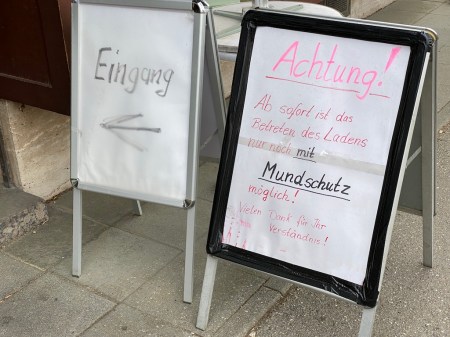 Eingang
Achtung!
Ab sofort ist das
Betreten des Ladens
nur noch mit
Mundschutz
möglich!
Vielen Dank für Ihr
Verständnis!